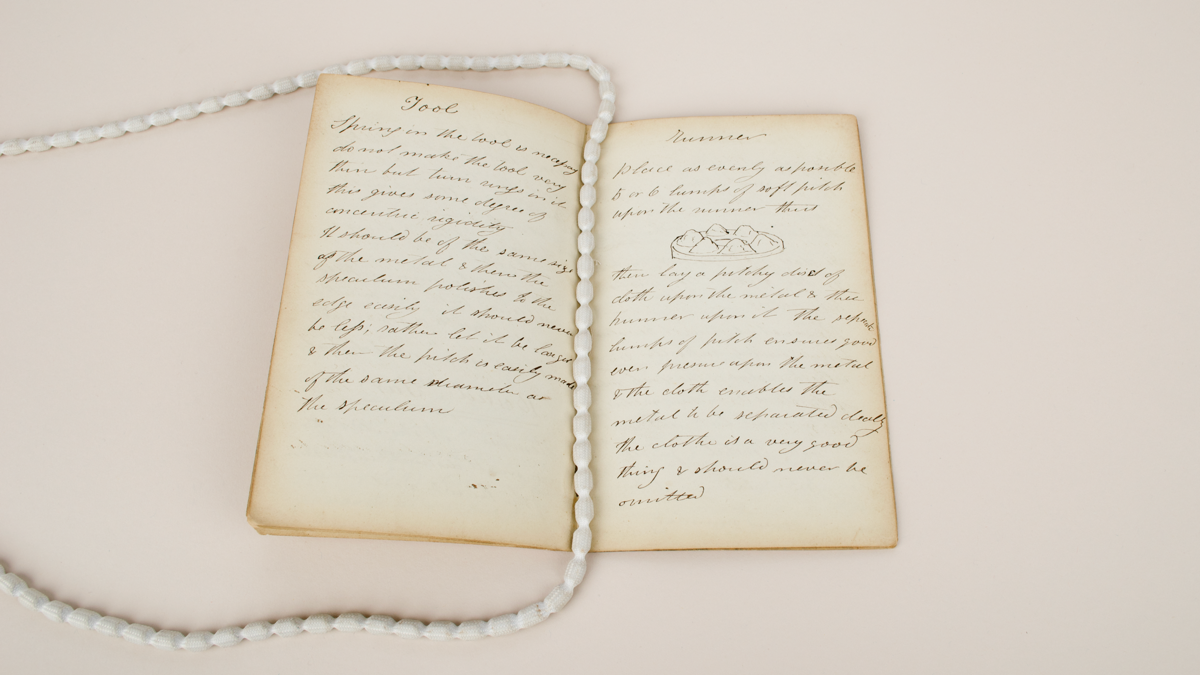 Tool
Spring in the tool is
do not make the tool very
thin but turn rings in it
this gives some degree of
concentric rigidity
It should be of the same size
as the metal & then the
speculum polishes to the
edge easily it should never
be less; rather let it be larger
& then the pitch is easily made
of the same diameter as
the speculum
Runner
Place as evenly as posible
5 or 6 lumps of soft pitch
upon the runner thus
then lay a pitchy disc of
cloth upon the metal & the
runner upon it the
lumps of pitch ensures good
even presure upon the metal
& the cloth enables the
metal to be separated
the clothe is a very good
thing & should never be
omitted